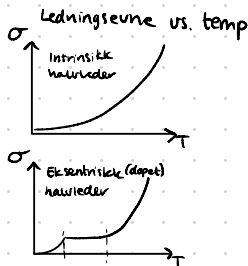 Ledningsevne vs. temp
σ
Intrinsikk
halvleder
T
σ
Eksentrisk (dopet)
halvleder
T